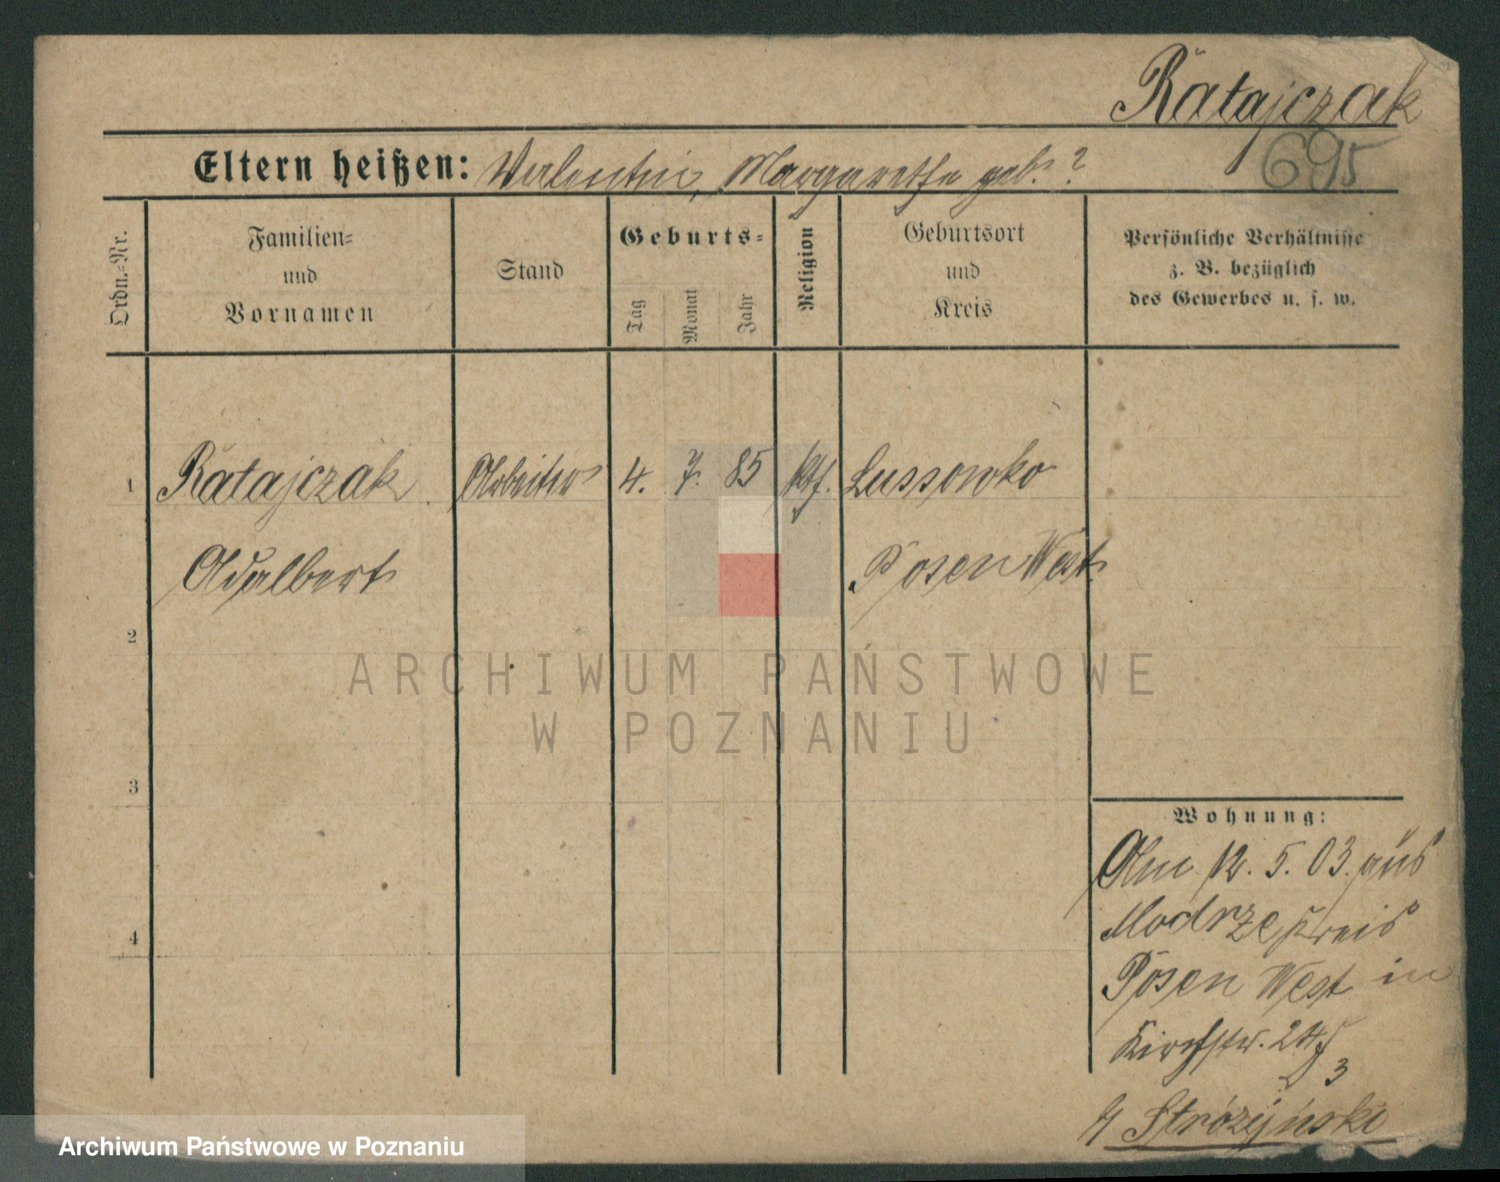 Ratajczak
695
Eltern heißen: Valentin, Margarethe geb. ?
Ordn.-Nr.
Familien-
und
Vornamen
Stand
Geburts-
Tag
Monat
Jahr
Religion
Geburtsort
und
Kreis
Persönliche Verhältnisse
z. B. bezüglich
des Gewerbes u. s. w.
1 Ratajczak Arbeiter 4. 7. 85 ktf. Lussowko
Adalbert Posen West
2
ARCHIWUM PAŃSTWOWE
W POZNANIU
3
Wohnung:
Am 12. 5. 03. aus
Modrze Kreis
4
Posen West in
Kirchstr. 24
3
Stróżyński
Archiwum Państwowe w Poznaniu